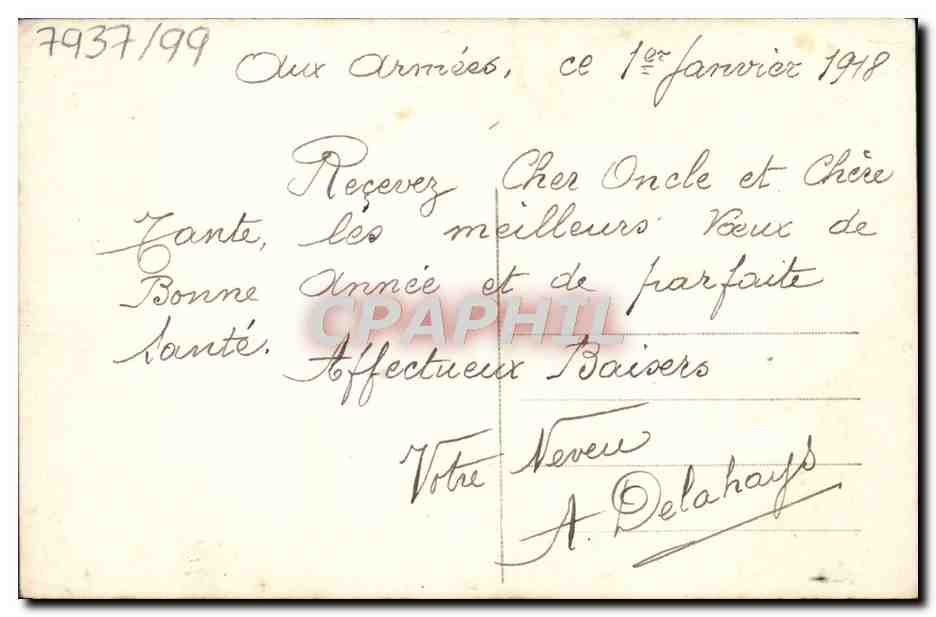 7937/99
Aux Armées, ce 1er Janvier 1918
Reçevez Cher Oncle et Chère
Tante, les meilleurs Vœux de
Bonne Année et de parfaite
CPAPHIL
Santé.
Affectueux Baisers
Votre Neveu
A. Delahays